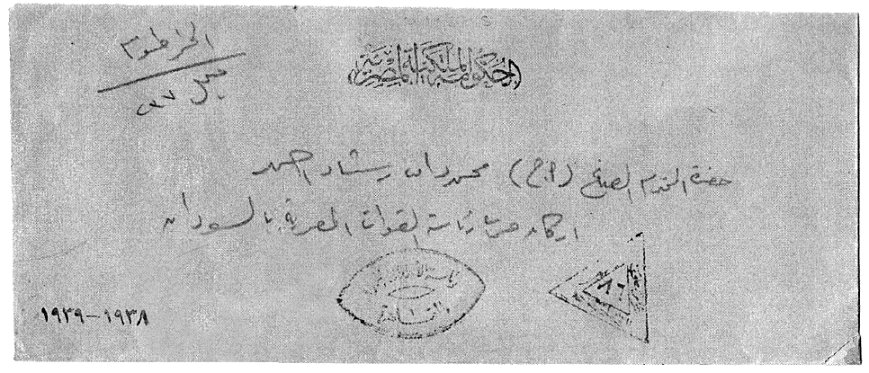 الخرطوم
الحكومة الملكية المصرية
حضرة المحترم الصاغ (ا.ح) محمود رشاد احمد
اركان حرب رئاسة القوات المصرية بالسودان
١٩٣٨-١٩٣٩